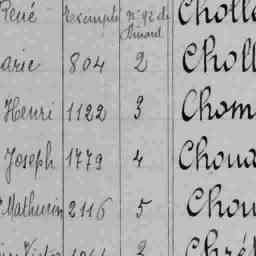 René Exempté nº 92 du Choll
Dinard
arie 804 2 Choll
Henri 1122 3 Chom
Joseph 1779 4 Choua
Mathurin 2116 5 Chou
Victor 2 Chré